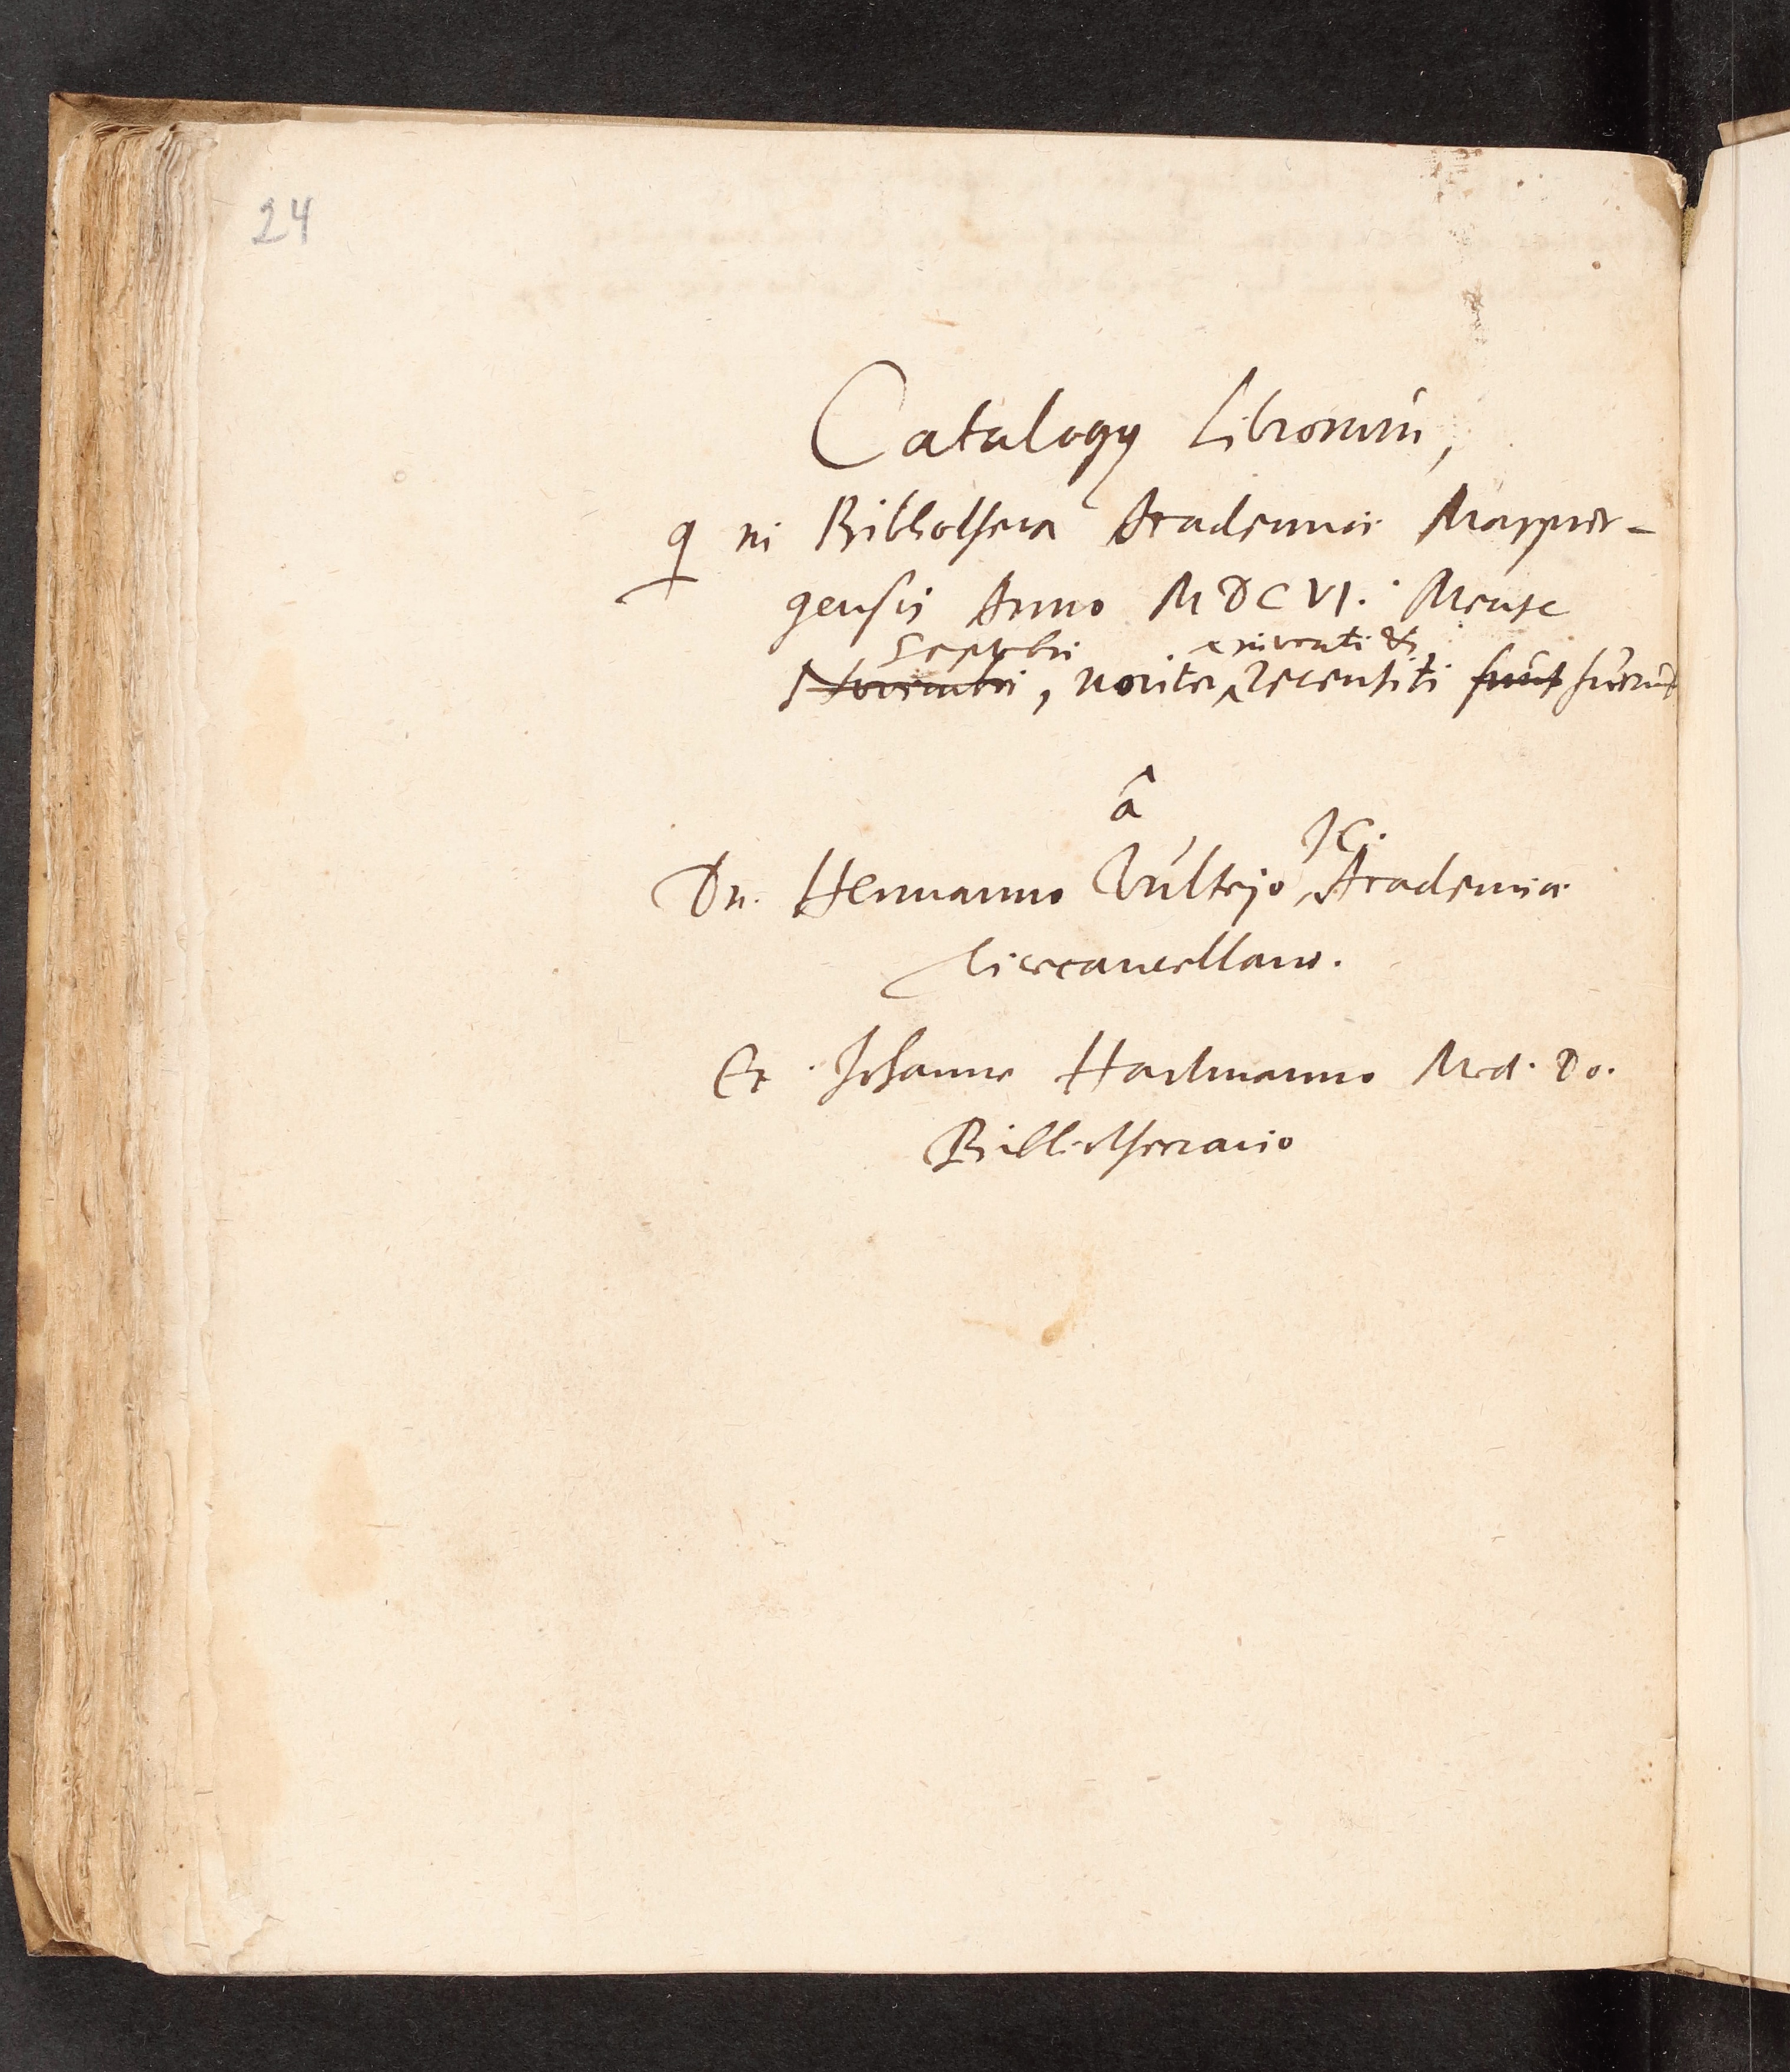 24
Catalogꝰ Librorum,
q in Bibliotheca Academiæ Marpur-
gensis Anno MDCVI. Mense
Septebri inventi &
Novembri, noviter recensiti sunt fuerūt
â
JC.
Dn. Hermanno Vultejo Academiæ
Vicecancellario.
Et Johanne Hartmanno Med. Do.
Bibliothecario